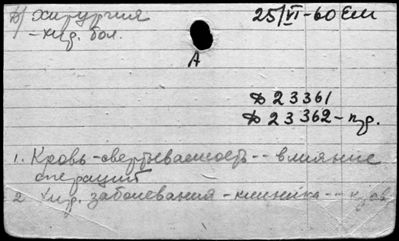 б) хирургия 25/VI-60 Ем
- хир. бол.
А
Д 23361
Д 23362 - пр.
1. Кровь - свертываемость -- влияние
операций
2. Хир. заболевания - клиника --